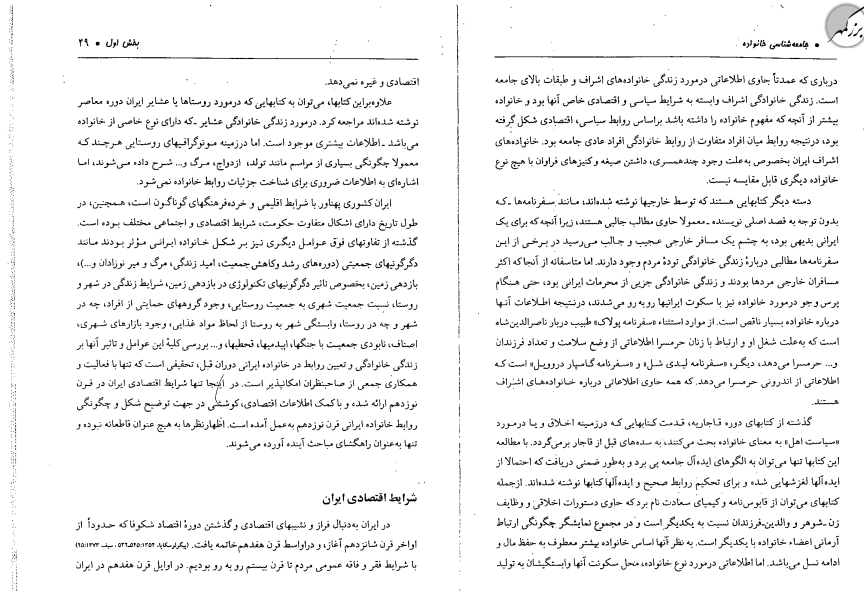 • جامعه‌شناسی خانواده
درباری که عمدتاً حاوی اطلاعاتی درمورد زندگی خانواده‌های اشراف و طبقات بالای جامعه
است. زندگی خانوادگی اشراف وابسته به شرایط سیاسی و اقتصادی خاص آنها بود و خانواده
بیشتر از آنچه که مفهوم خانواده را داشته باشد براساس روابط سیاسی، اقتصادی شکل گرفته
بود، درنتیجه روابط میان افراد متفاوت از روابط خانوادگی افراد عادی جامعه بود. خانواده‌های
اشراف ایران بخصوص به‌علت وجود چندهمسری، داشتن صیغه و کنیزهای فراوان با هیچ نوع
خانواده دیگری قابل مقایسه نیست.
دسته دیگر کتابهایی هستند که توسط خارجیها نوشته شده‌اند، مانند سفرنامه‌ها ـ که
بدون توجه به قصد اصلی نویسنده ـ معمولا حاوی مطالب جالبی هستند، زیرا آنچه که برای یک
ایرانی بدیهی بود، به چشم یک مسافر خارجی عجیب و جالب می‌رسید در برخی از این
سفرنامه‌ها مطالبی درباره زندگی خانوادگی توده مردم وجود دارند. اما متاسفانه از آنجا که اکثر
مسافران خارجی مردها بودند و زندگی خانوادگی جزیی از محرمات ایرانی بود، حتی هنگام
پرس وجو درمورد خانواده نیز با سکوت ایرانیها روبه‌رو می‌شدند، درنتیجه اطلاعات آنها
درباره خانواده بسیار ناقص است. از موارد استثناء «سفرنامه پولاک» طبیب دربار ناصرالدین‌شاه
است که به‌علت شغل او و ارتباط با زنان حرمسرا اطلاعاتی از وضع سلامت و تعداد فرزندان
و... حرمسرا می‌دهد، دیگر، «سفرنامه لیدی شل» و «سفرنامه گاسپار دروویل» است که
اطلاعاتی از اندرونی حرمسرا می‌دهد. که همه حاوی اطلاعاتی درباره خانواده‌های اشراف
هستند.
گذشته از کتابهای دوره قاجاریه، قدمت کتابهایی که درزمینه اخلاق و یا درمورد
«سیاست اهل» به معنای خانواده بحث می‌کنند، به سده‌های قبل از قاجار برمی‌گردد. با مطالعه
این کتابها تنها می‌توان به الگوهای ایده‌آل جامعه پی برد و به‌طور ضمنی دریافت که احتمالا از
ایده‌آلها لغزشهایی شده و برای تحکیم روابط صحیح و ایده‌آلها کتابها نوشته شده‌اند. ازجمله
کتابهای می‌توان از قابوس‌نامه و کیمیای سعادت نام برد که حاوی دستورات اخلاقی و وظایف
زن ـ شوهر و والدین ـ فرزندان نسبت به یکدیگر است و در مجموع نمایشگر چگونگی ارتباط
آرمانی اعضاء خانواده با یکدیگر است. به نظر آنها اساس خانواده بیشتر معطوف به حفظ مال و
ادامه نسل می‌باشد. اما اطلاعاتی درمورد نوع خانواده، محل سکونت آنها وابستگیشان به تولید
بخش اول • ۲۹
اقتصادی و غیره نمی‌دهد.
علاوه‌براین کتابها، می‌توان به کتابهایی که درمورد روستاها یا عشایر ایران دوره معاصر
نوشته شده‌اند مراجعه کرد. درمورد زندگی خانوادگی عشایر ـ که دارای نوع خاصی از خانواده
می‌باشد ـ اطلاعات بیشتری موجود است. اما درزمینه مونوگرافیهای روستایی هرچند که
معمولا چگونگی بسیاری از مراسم مانند تولد، ازدواج، مرگ و... شرح داده می‌شوند، اما
اشاره‌ای به اطلاعات ضروری برای شناخت جزئیات روابط خانواده نمی‌شود.
ایران کشوری پهناور با شرایط اقلیمی و خرده‌فرهنگهای گوناگون است، همچنین، در
طول تاریخ دارای اشکال متفاوت حکومت، شرایط اقتصادی و اجتماعی مختلف بوده است.
گذشته از تفاوتهای فوق عوامل دیگری نیز بر شکل خانواده ایرانی مؤثر بودند مانند
دگرگونیهای جمعیتی (دوره‌های رشد وکاهش جمعیت، امید زندگی، مرگ و میر نوزادان و...)،
بازدهی زمین، بخصوص تاثیر دگرگونیهای تکنولوژی در بازدهی زمین، شرایط زندگی در شهر و
روستا، نسبت جمعیت شهری به جمعیت روستایی، وجود گروههای حمایتی از افراد، چه در
شهر و چه در روستا، وابستگی شهر به روستا از لحاظ مواد غذایی، وجود بازارهای شهری،
اصناف، نابودی جمعیت با جنگها، اپیدمیها، قحطیها، و... بررسی کلیهٔ این عوامل و تاثیر آنها بر
زندگی خانوادگی و تعیین روابط در خانواده ایرانی دوران قبل، تحقیقی است که تنها با فعالیت و
همکاری جمعی از صاحبنظران امکانپذیر است. در اینجا تنها شرایط اقتصادی ایران در قرن
نوزدهم ارائه شده و با کمک اطلاعات اقتصادی، کوششی در جهت توضیح شکل و چگونگی
روابط خانواده ایرانی قرن نوزدهم به‌عمل آمده است. اظهارنظرها به هیچ عنوان قاطعانه نبوده و
تنها به‌عنوان راهگشای مباحث آینده آورده می‌شوند.
شرایط اقتصادی ایران
در ایران به‌دنبال فراز و نشیبهای اقتصادی و گذشتن دورهٔ اقتصاد شکوفا که حدوداً از
اواخر قرن شانزدهم آغاز، و دراواسط قرن هفدهم خاتمه یافت. (پیگولوسکایا، ۱۳۵۴:
با شرایط فقر و فاقه عمومی مردم تا قرن بیستم رو به رو بودیم. در اوایل قرن هفدهم در ایران